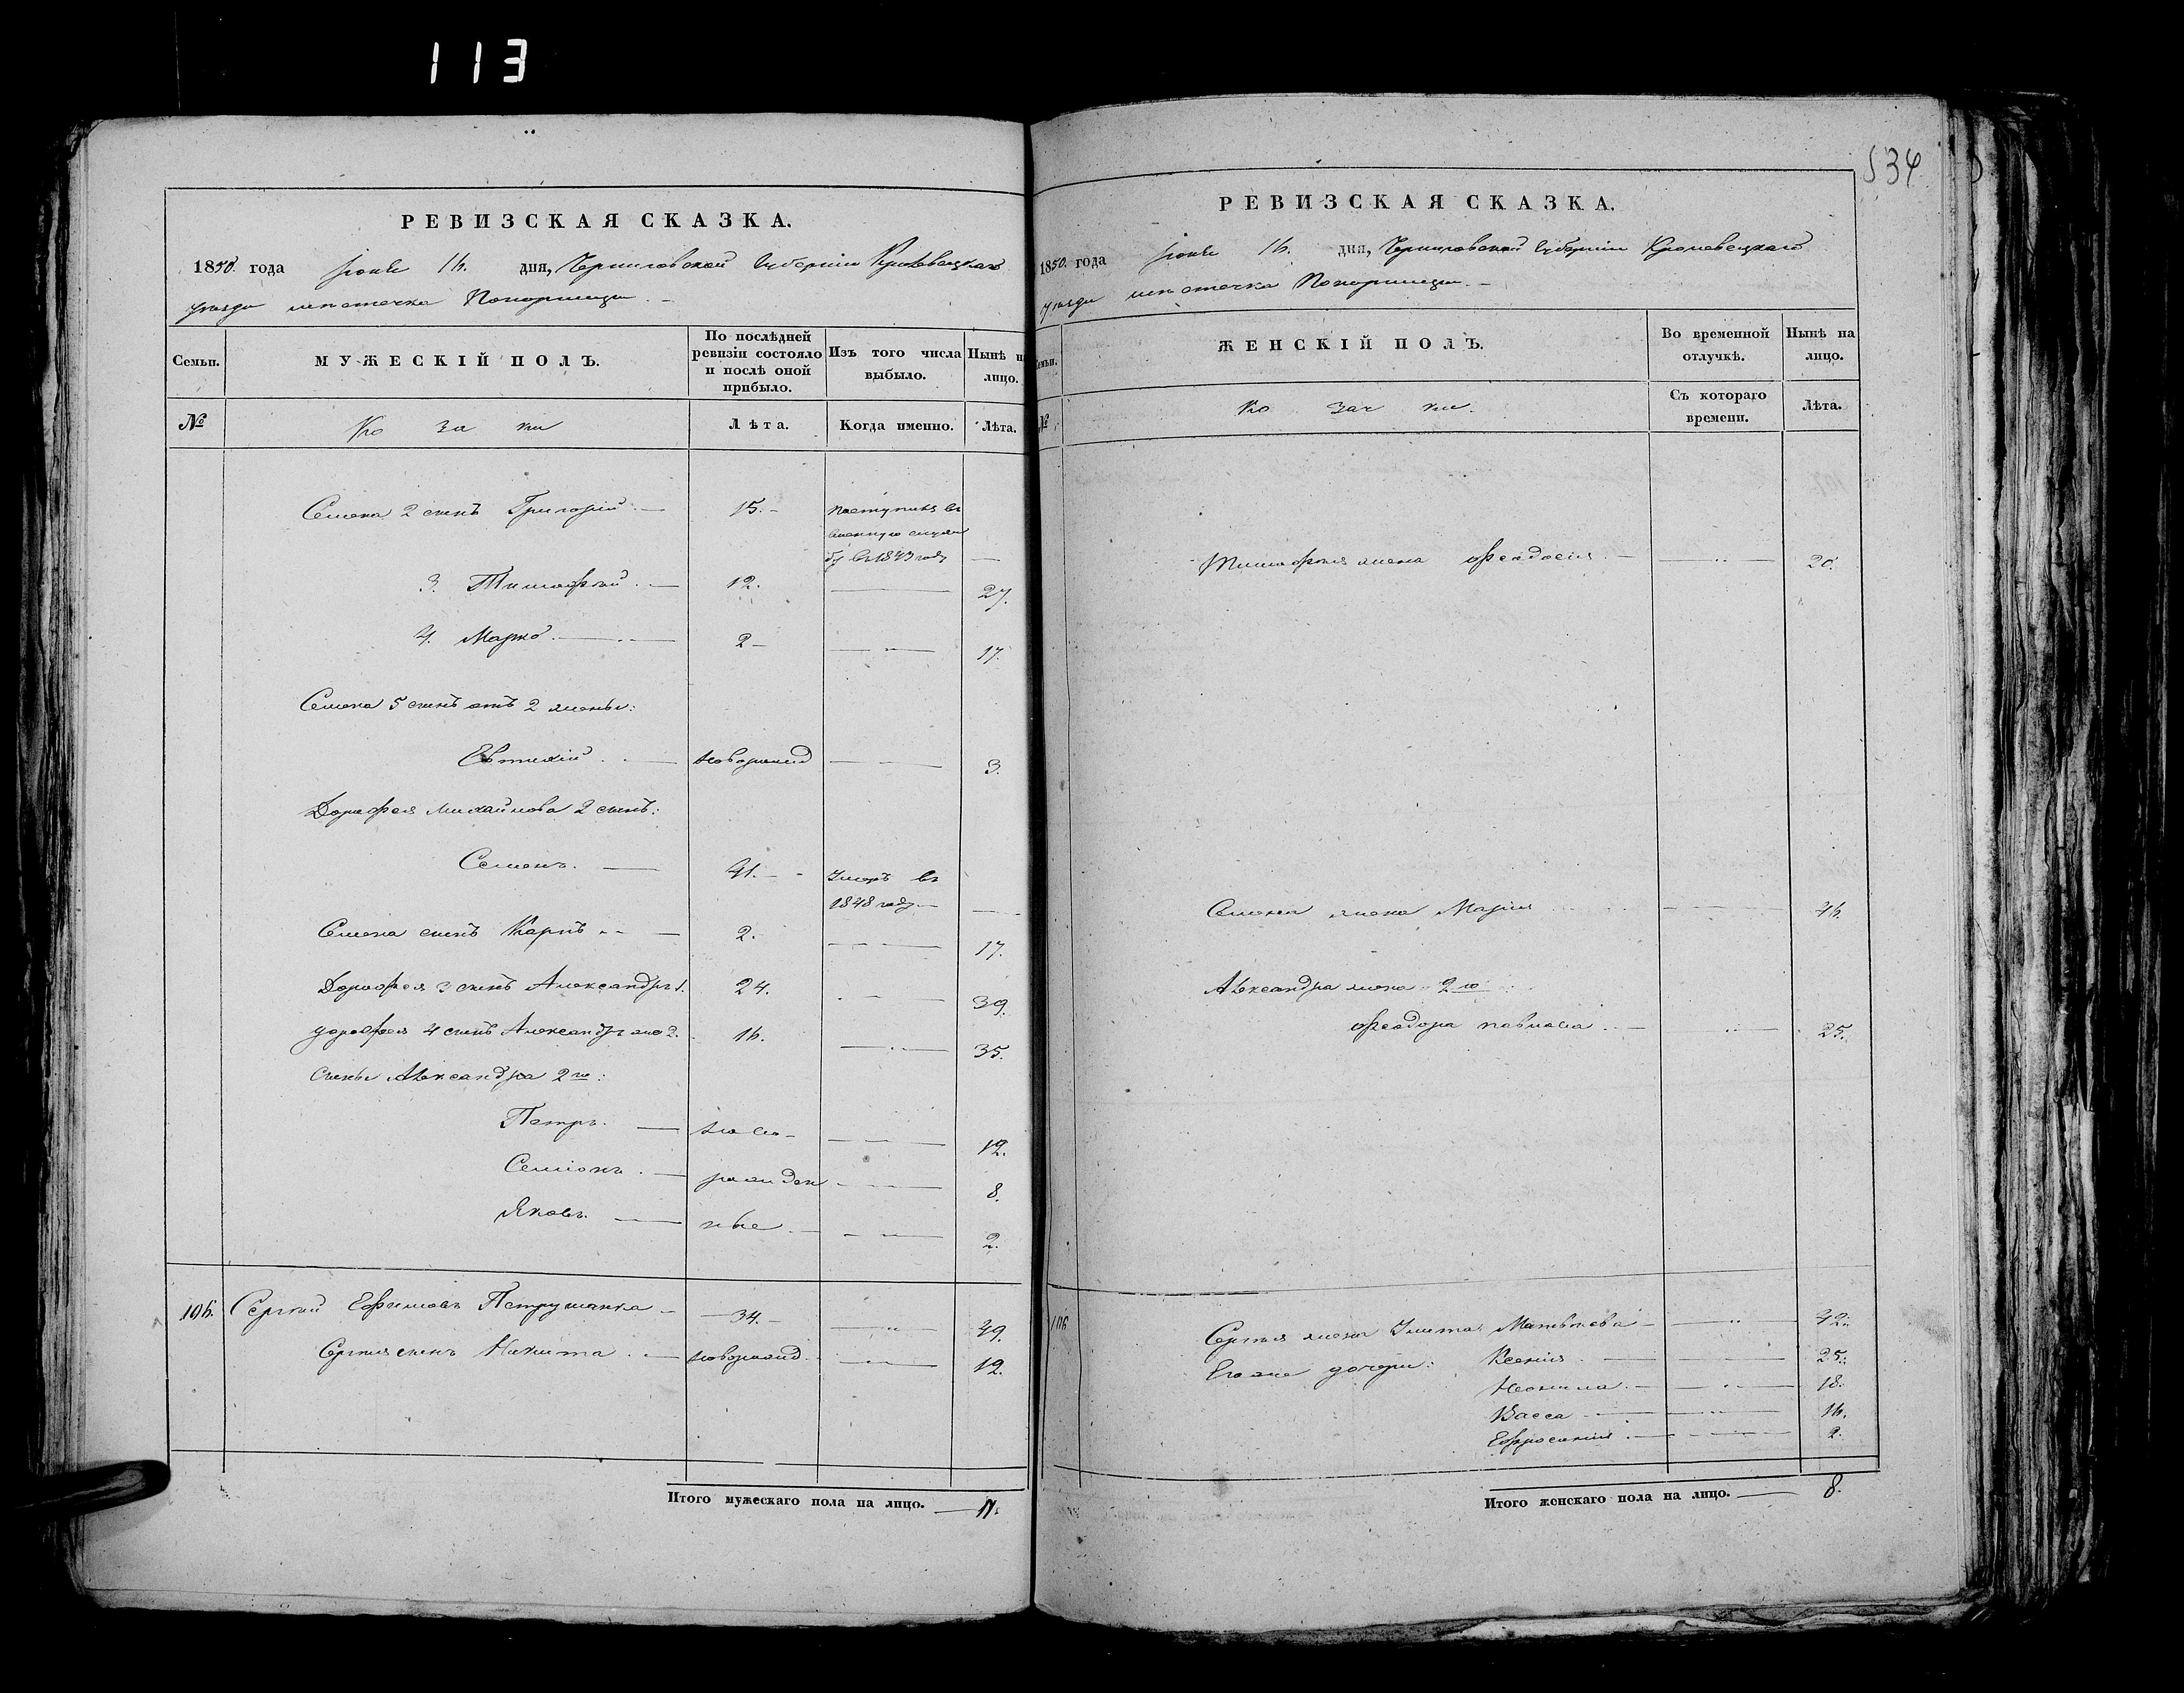 113
534
РЕВИЗСКАЯ СКАЗКА.
1850 года Іюня 16. дня, Черниговской Губерніи Кролевецкаго
уѣзда мѣстечка Понорницы. –
Семьи.
МУЖЕСКІЙ ПОЛЪ.
По послѣдней
ревизіи состояло
и послѣ оной
прибыло.
Изъ того числа
выбыло.
Нынѣ на
лицо.
№
Козаки
Лѣта.
Когда именно.
Лѣта.
Семена 2 сынъ Григорій. — 15. – поступилъ въ
военную служ
бу въ 1843 году —
3. Тимофей. — 12. — 27.
4. Марко. — 2 – — 17.
Семена 5 сынъ отъ 2 жены:
Евтихій . — новорожд — 3.
Дорофея Михайлова 2 сынъ:
Семенъ. — 41. – Умеръ въ
1848 году —
Семена сынъ Карпъ — 2. — 17.
Дорофея 3 сынъ Александръ 1. 24. — 39.
Дорофея 4 сынъ Александръ же 2. 16. — 35.
Сыны Александра 2го:
Петръ. — ново- — 12.
Семіонъ. — рожден — 8.
Яковъ. — ные — 2.
106. Сергій Ефимовъ Петрушенка – 34. – — 49.
Сергія сынъ Никита . — новорожд. — 12.
Итого мужескаго пола на лицо. — 11.
РЕВИЗСКАЯ СКАЗКА.
1850. года Іюня 16. дня, Черниговской Губерніи Кролевецкаго
уѣзда мѣстечка Понорницы. –
Семьи.
ЖЕНСКІЙ ПОЛЪ.
Во временной
отлучкѣ.
Нынѣ на
лицо.
№
Козачки.
Съ котораго
времени.
Лѣта.
Тимофея жена Феодосія. — 20.
Семена жена Марія — 46.
Александра жена 2го:
Феодора Павлова . — 25.
106 Сергія жена Улита Матвѣева — 42.
Его же дочери: Ксенія. — 25.
Неонила. — 18.
Васса — 16.
Ефросинія . — 2.
Итого женскаго пола на лицо. — 8.